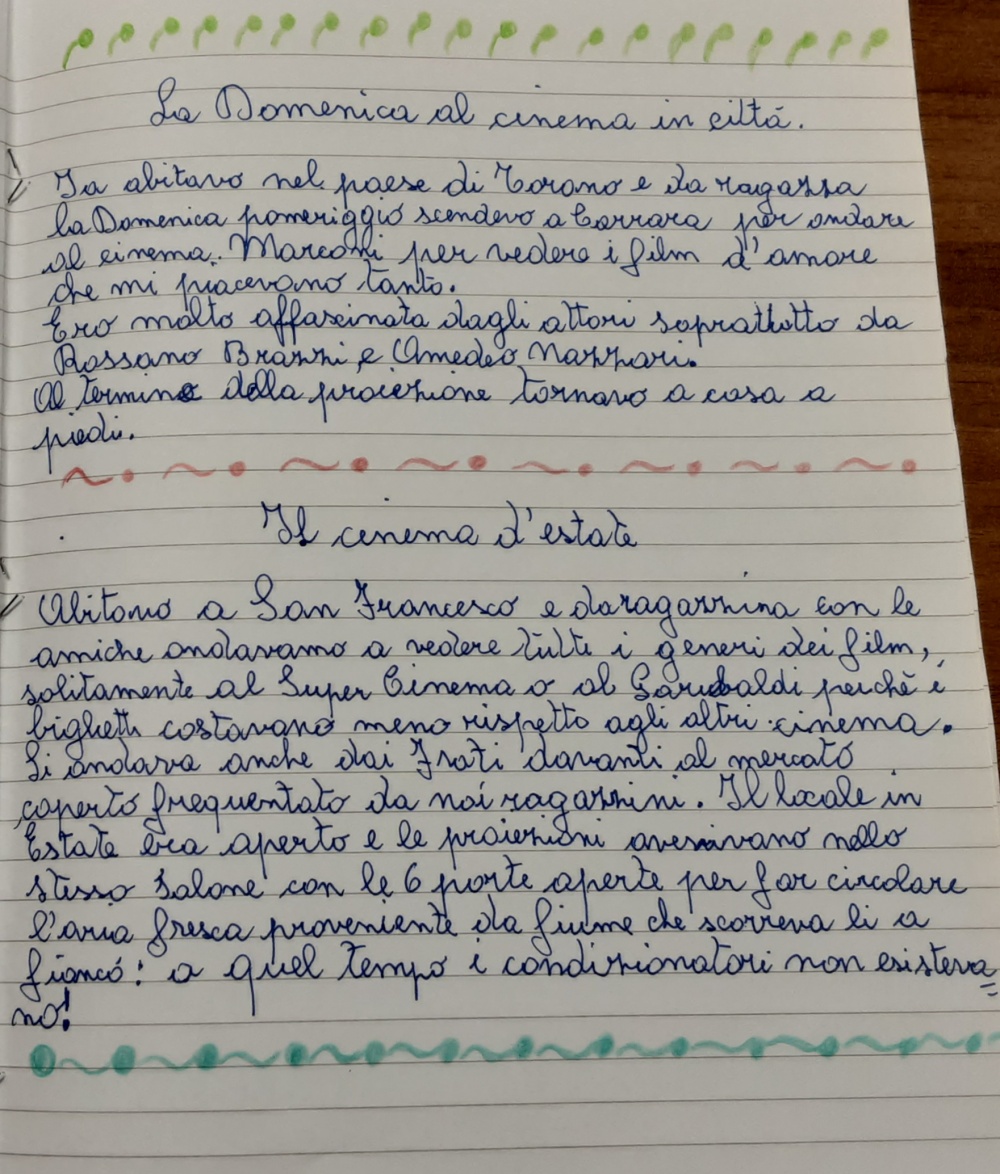 La Domenica al cinema in città.
Io abitavo nel paese di Torano e da ragazza
la Domenica pomeriggio scendevo a Carrara per andare
al cinema Marconi per vedere i film d'amore
che mi piacevano tanto.
Ero molto affascinata dagli attori soprattutto da
Rossano Brazzi e Amedeo Nazzari.
Al termine della proiezione tornavo a casa a
piedi.
Il cinema d'estate
Abitavo a San Francesco e da ragazzina con le
amiche andavamo a vedere tutti i generi dei film,
solitamente al Super Cinema o al Garibaldi perchè i
biglietti costavano meno rispetto agli altri cinema.
Si andava anche dai Frati davanti al mercato
coperto frequentato da noi ragazzini. Il locale in
Estate era aperto e le proiezioni avvenivano nello
stesso salone con le 6 porte aperte per far circolare
l'aria fresca proveniente da fiume che scorreva li a
fianco: a quel tempo i condizionatori non esisteva
no!